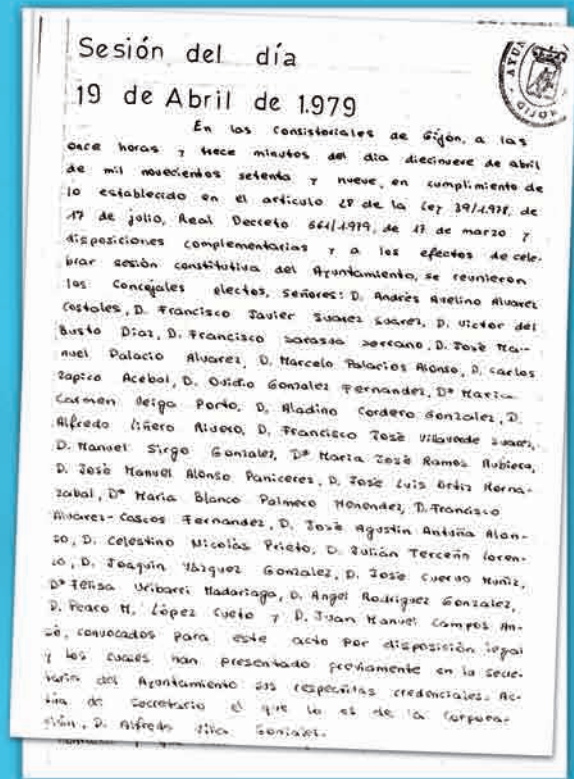 Sesión del día
19 de Abril de 1.979
En las Consistoriales de Gijón, a las
once horas y trece minutos del día diecinueve de abril
de mil novecientos setenta y nueve, en cumplimiento de
lo establecido en el artículo 28 de la Ley 39/1.978, de
17 de julio, Real Decreto 661/1979, de 13 de marzo y
disposiciones complementarias y a los efectos de cele-
brar sesión constitutiva del Ayuntamiento, se reunieron
los Concejales electos, señores: D. Andrés Avelino Alvarez
Costales, D. Francisco Javier Suarez Suarez, D. Victor del
Busto Diaz, D. Francisco Sarasua Serrano, D. José Ma-
nuel Palacio Alvarez, D. Marcelo Palacios Alonso, D. Carlos
Zapico Acebal, D. Ovidio Gonzalez Fernandez, Dª Maria
Carmen Veiga Porto, D. Aladino Cordero Gonzalez, D.
Alfredo Liñero Rivero, D. Francisco José Villaverde Suarez,
D. Manuel Sirgo Gonzalez, Dª Maria José Ramos Rubiera,
D. José Manuel Alonso Paniceres, D. José Luis Ortiz Horna-
zabal, Dª Maria Blanco Palmero Menendez, D. Francisco
Alvarez-Cascos Fernandez, D. José Agustin Antuña Alon-
so, D. Celestino Nicolás Prieto, D. Julián Terceño Loren-
zo, D. Joaquin Vázquez Gonzalez, D. José Cuervo Muñiz,
Dª Felisa Uribarri Madariaga, D. Angel Rodriguez Gonzalez,
D. Pedro M. López Cueto y D. Juan Manuel Campos An-
só, convocados para este acto por disposición legal
y los cuales han presentado previamente en la secre-
taria del Ayuntamiento sus respectivas credenciales. Ac-
túa de Secretario el que lo es de la Corpora-
ción, D. Alfredo Villa Gonzalez.